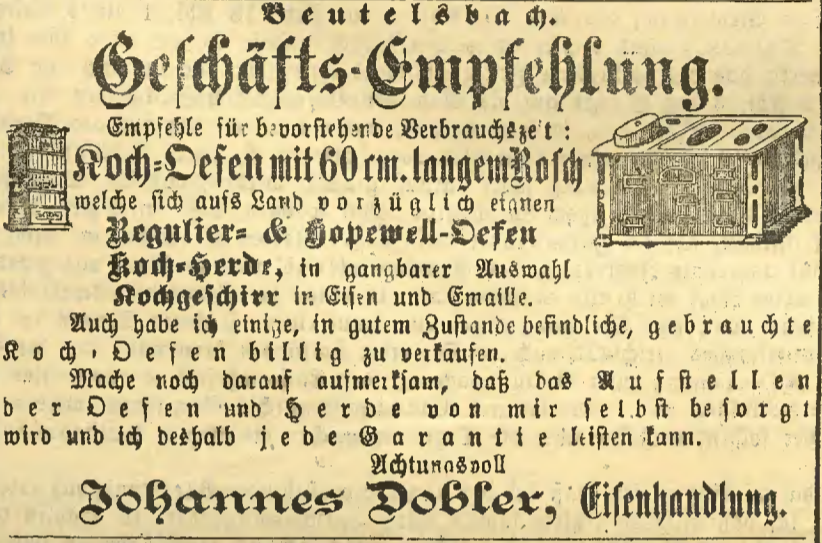 Beutelsbach.
Geschäfts-Empfehlung.
Empfehle für bevorstehende Verbrauchszeit:
Koch-Oefen mit 60 cm. langem Rosch
welche sich aufs Land vorzüglich eignen
Regulier- & Hopewell-Oefen
Koch-Herde, in gangbarer Auswahl
Kochgeschirr in Eisen und Emaille.
Auch habe ich einige, in gutem Zustande befindliche, gebrauchte
Koch-Oefen billig zu verkaufen.
Mache noch darauf aufmerksam, daß das Aufstellen
der Oefen und Herde von mir selbst besorgt
wird und ich deshalb jede Garantie leisten kann.
Achtungsvoll
Johannes Dobler, Eisenhandlung.